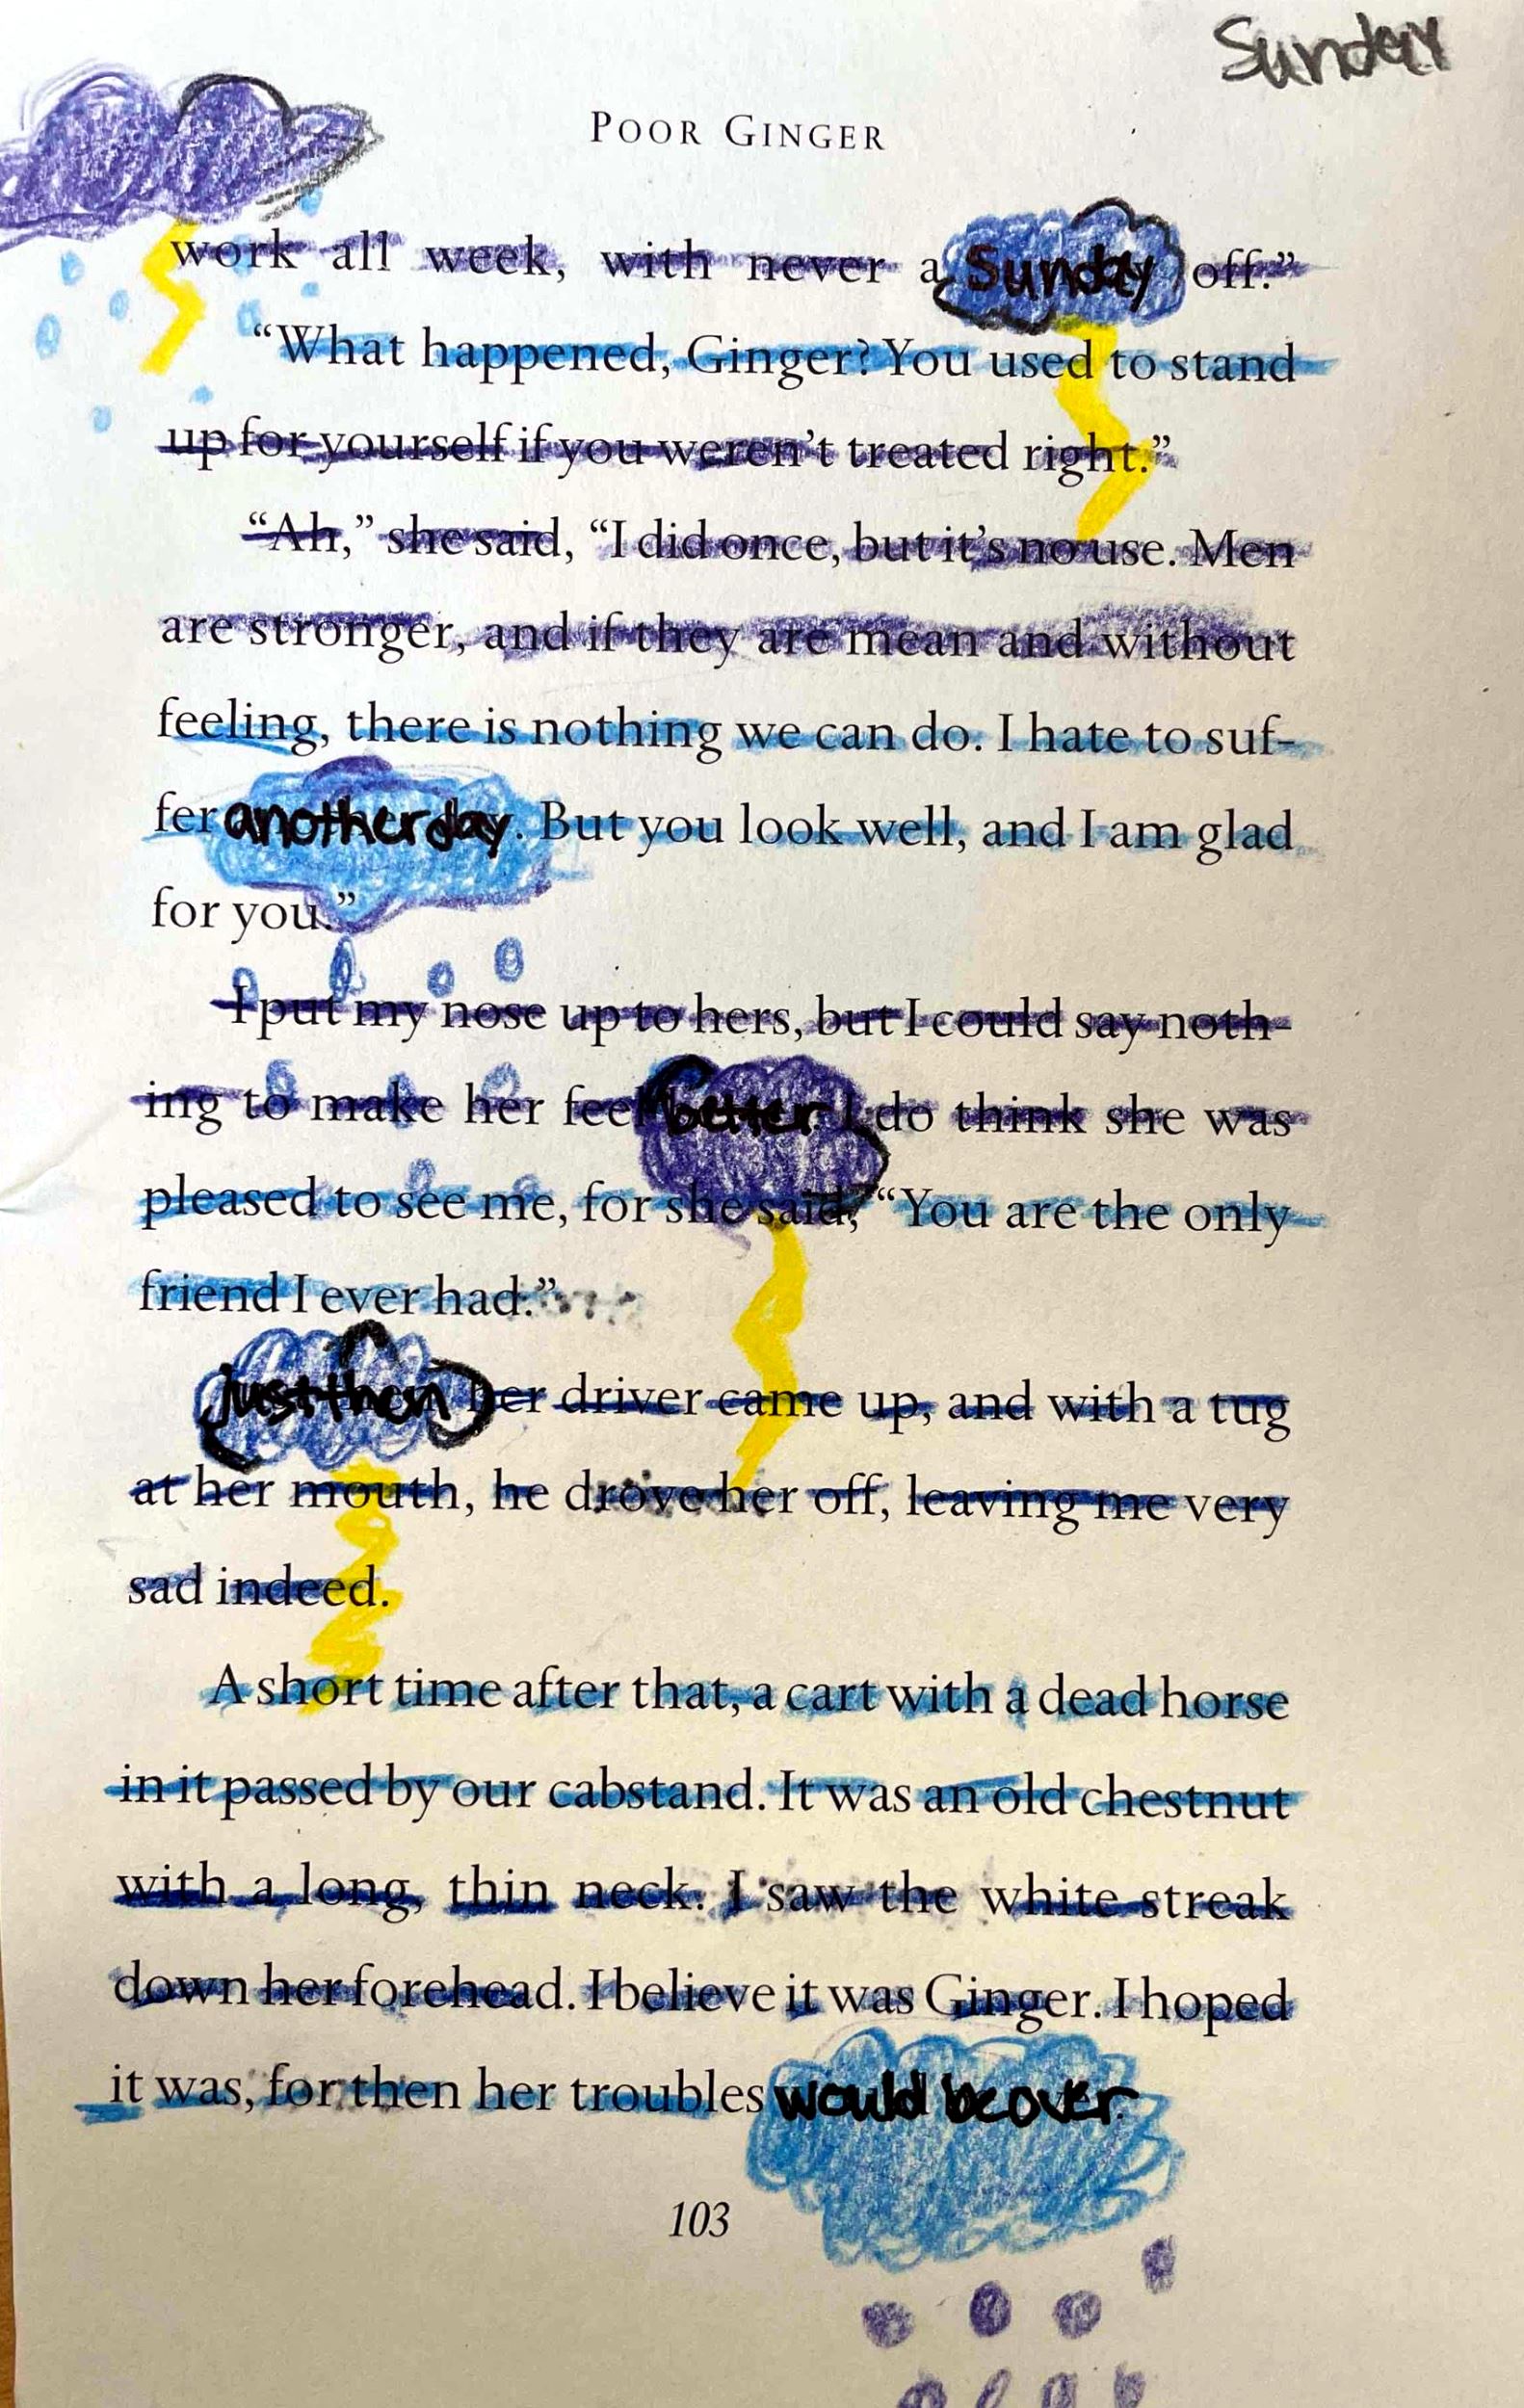 Sunday
POOR GINGER
work all week, with never a Sunday off.”
“What happened, Ginger? You used to stand
up for yourself if you weren’t treated right.”
“Ah,” she said, “I did once, but it’s no use. Men
are stronger, and if they are mean and without
feeling, there is nothing we can do. I hate to suf-
fer another day. But you look well, and I am glad
for you.”
I put my nose up to hers, but I could say noth-
ing to make her feel better. I do think she was
pleased to see me, for she said, “You are the only
friend I ever had.”
just then her driver came up, and with a tug
at her mouth, he drove her off, leaving me very
sad indeed.
A short time after that, a cart with a dead horse
in it passed by our cabstand. It was an old chestnut
with a long, thin neck. I saw the white streak
down her forehead. I believe it was Ginger. I hoped
it was, for then her troubles would be over.
103